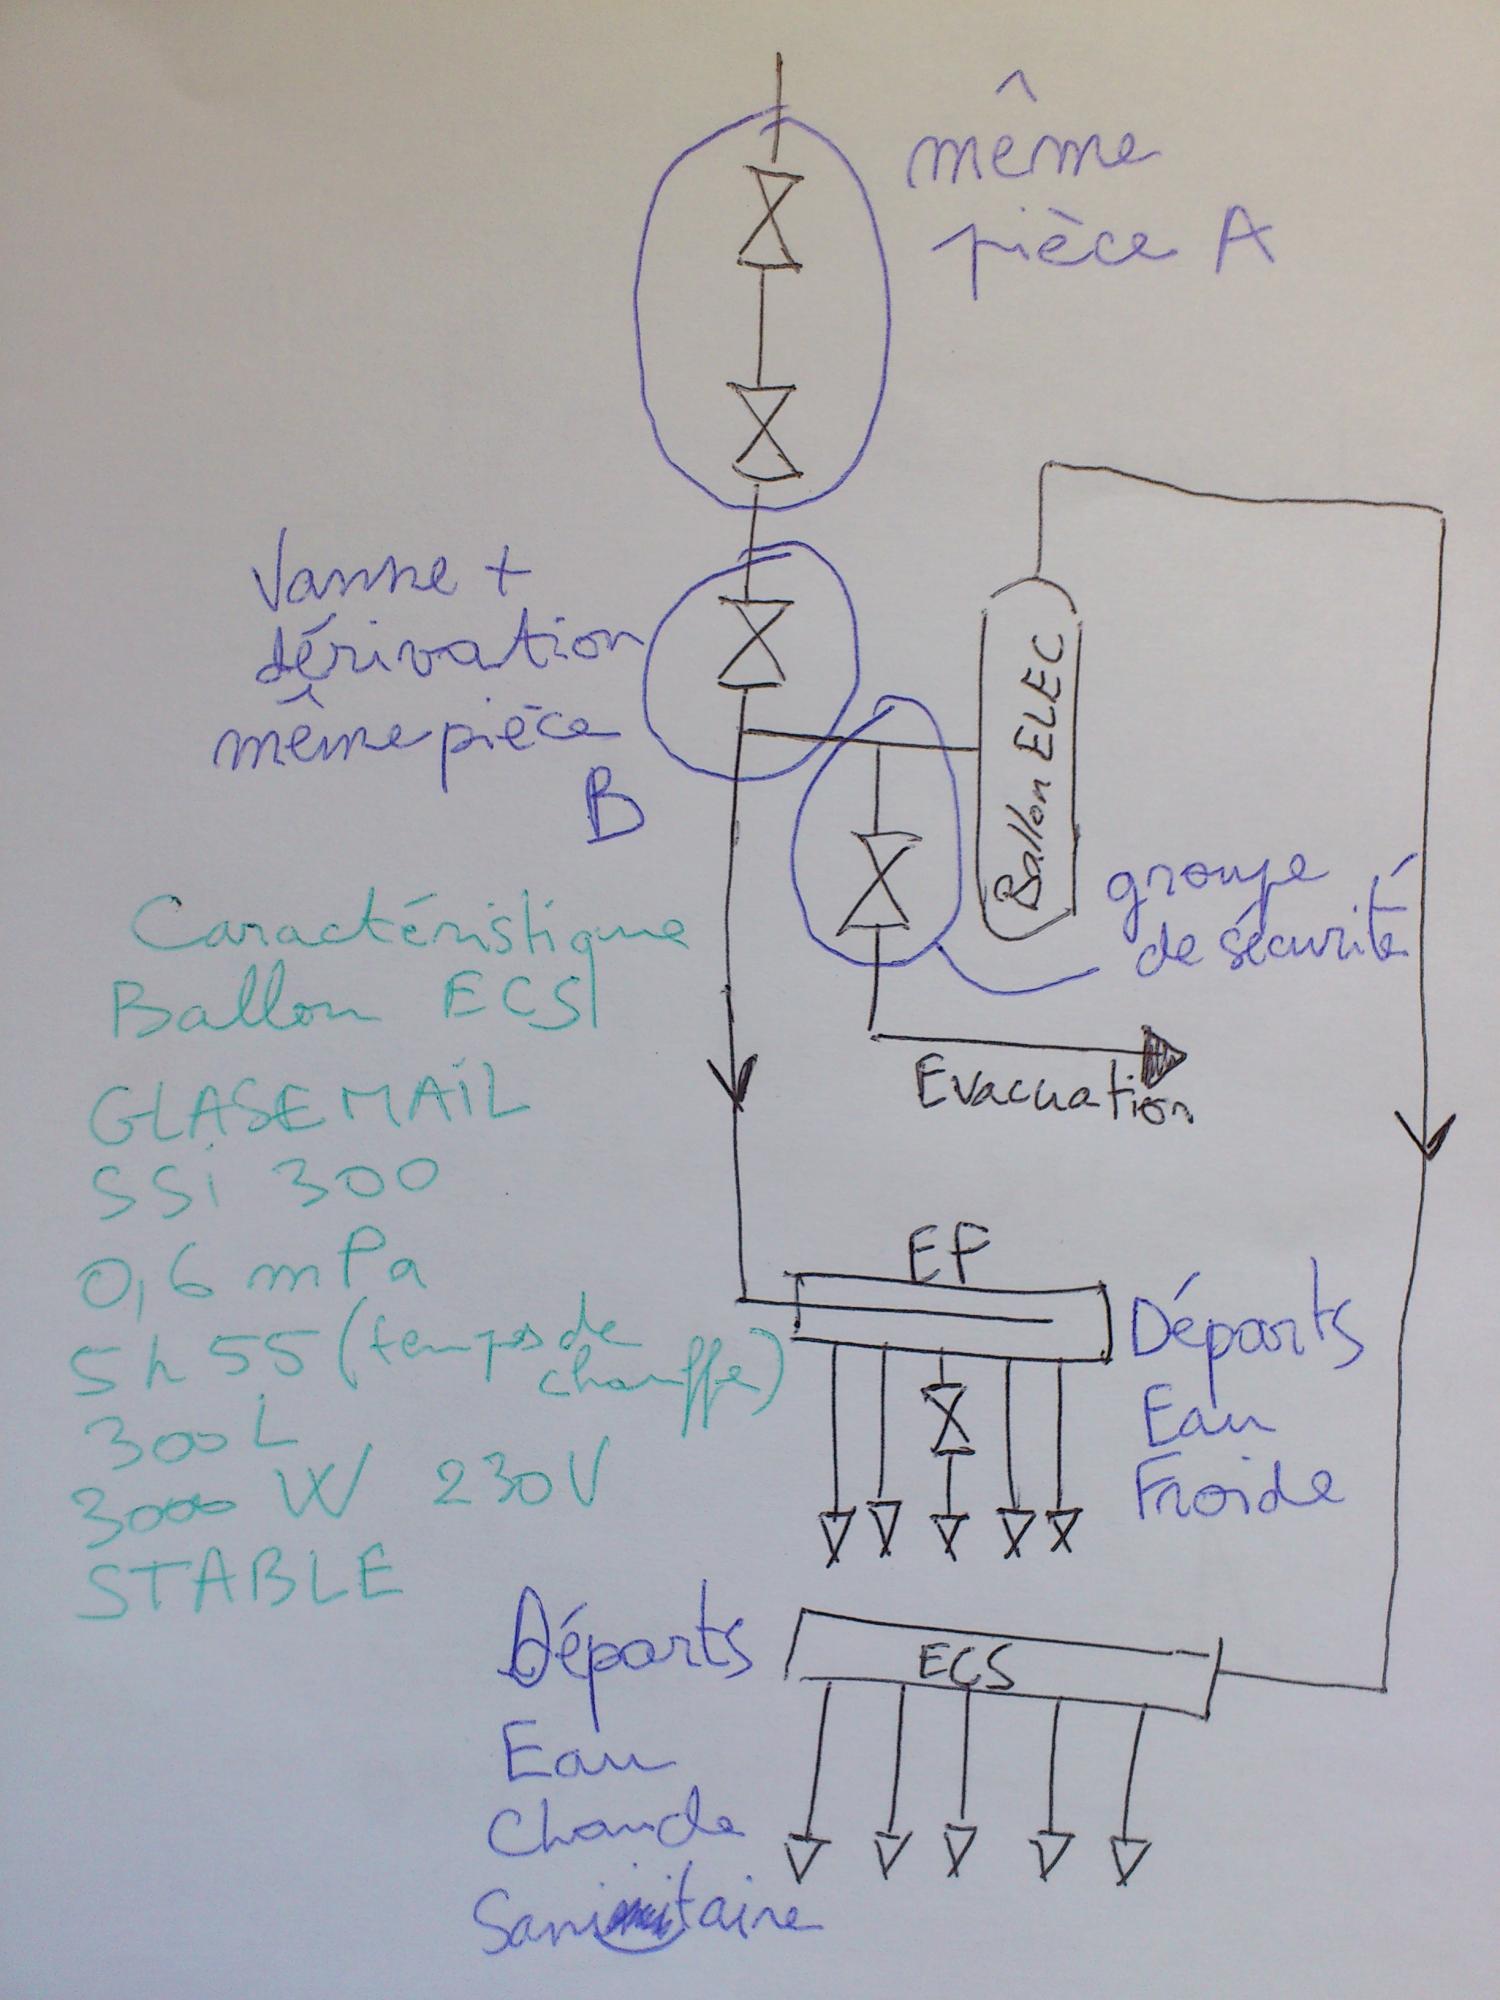 même
pièce A
Vanne +
dérivation
même pièce
B
Ballon ELEC
groupe
de sécurité
Evacuation
Caractéristique
Ballon ECS
GLASEMAIL
SSi 300
0,6 mPa
5h55 (temps de
chauffe)
300 L
3000 W 230V
STABLE
EF
Départs
Eau
Froide
ECS
Départs
Eau
Chaude
Sanitaire